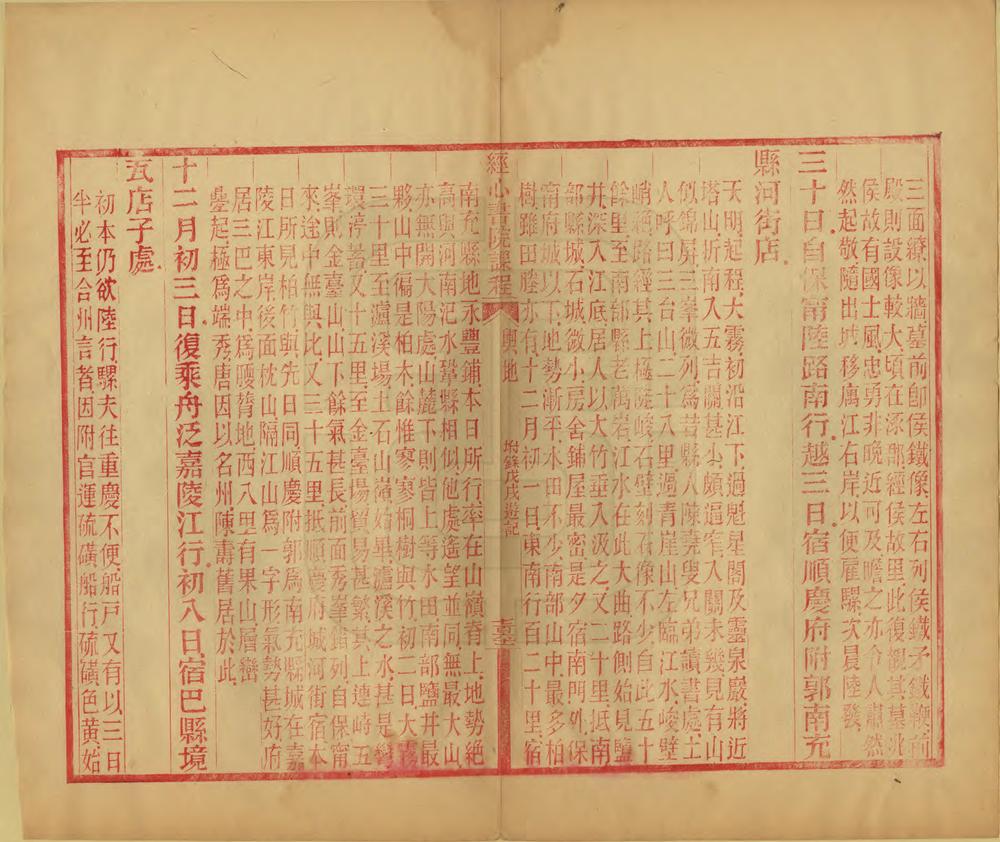 三面繚以牆墓前卽侯鐵像左右列侯鐵矛鐵鞭前
殿則設像較大頃在涿郡經侯故里此復觀其墓兆
侯故有國士風忠勇非晚近可及瞻之亦令人肅然
然起敬隨出城移寓江右岸以便雇騾次晨陸發
三十日自保甯陸路南行越三日宿順慶府附郭南充
縣河街店
天明起程大霧初沿江下過魁星閣及靈泉巖將近
塔山折南入五吉關甚尖頗逼窄入關未幾見有山
似錦屏三峯微列爲若縣人陳堯叟兄弟讀書處土
人呼曰三台山二十八里過青崖山左臨江水峻壁
峭通路經其上極陡峻石壁刻石像不少自此五十
餘里至南部縣老萬岩江水在此大曲路側始見鹽
井深入江底居人以大竹垂入汲之又二十里抵南
部縣城石城微小房舍鋪屋最密是夕宿南門外保
甯府城以下地勢漸平水田不少南部山中最多柏
樹雖田塍亦有十二月初一日東南行百二十里宿
經心書院課程 輿地 坿錄戊戌遊記
南充縣地永豐鋪本日所行率在山嶺脊上地勢絕
高與河南汜水鞏縣相似他處遙望並同無最大山
亦無開大陽處山麓下則皆上等水田南部鹽井最
夥山中徧是柏木餘惟寥寥桐樹與竹初二日大霧
三十里至瀘溪場土石山嶺始畢瀘溪之水甚
環渟蓄又十五里至金臺場貿易甚繁其上連峙五
峯則金臺山山下餘氣甚長前面秀峯錯列自保甯
來途中無與比又三十五里抵順慶府城河街宿本
日所見柏竹與先日同順慶附郭爲南充縣城在嘉
陵江東岸後面枕山隔江山爲一字形氣勢甚好府
居三巴之中爲腰膂地西八里有果山層巒
疊起極爲端秀唐因以名州陳壽舊居於此
十二月初三日復乘舟泛嘉陵江行初八日宿巴縣境
瓦店子處
初本仍欲陸行騾夫往重慶不便船戸又有以三日
半必至合州言者因附官運硫磺船行硫磺色黃始